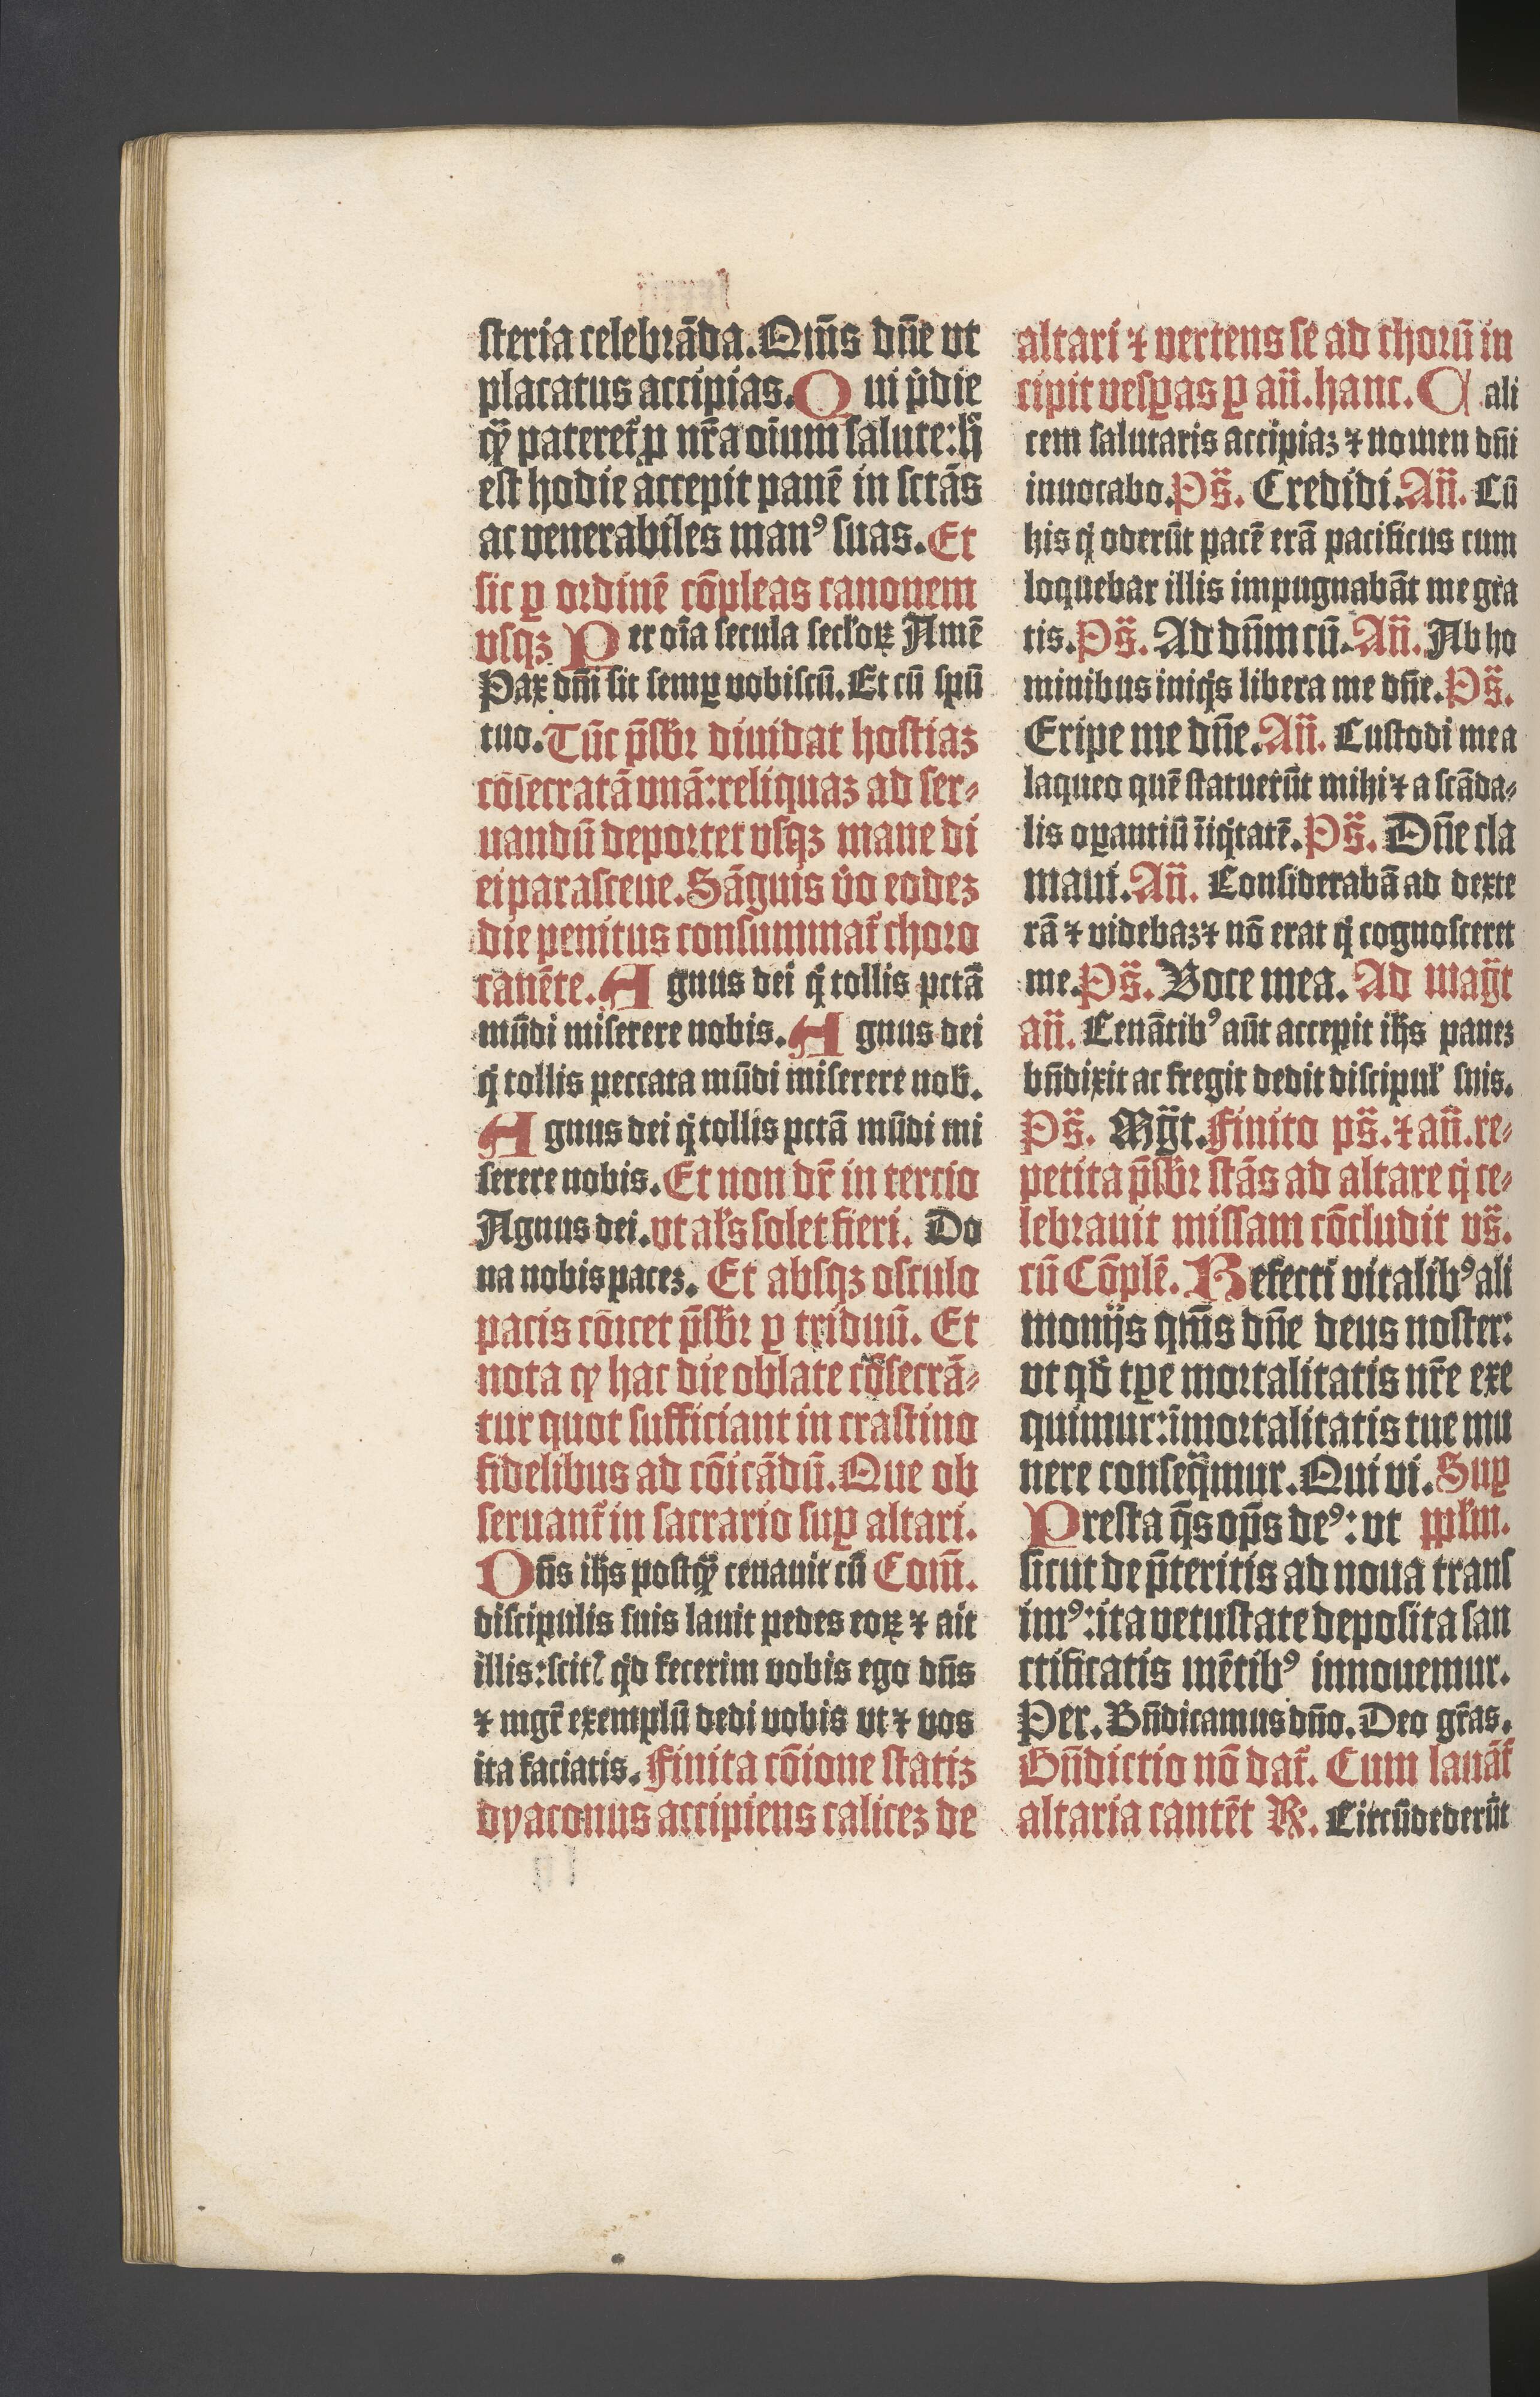 steria celebrāda. Qm̄s dn̄e vt
placatus accipias. Qui p̄die
qȝ pateret᷑ ꝓ nr̄a oīum salute: h̄
est hodie accepit panē in sctās
ac venerabiles manꝰ suas. Et
sic ꝑ ordinē cōpleas canonem
vsqꝫ Per oīa secula secl'oꝝ Amē
Pax dn̄i sit semꝑ vobiscū. Et cū spū
tuo. Tūc p̄sbr̄ diuidat hostiaz
cōsecratā vnā: reliquaz ad ser⸗
uandū deportet vsqꝫ mane di
ei parasceue. Sāguis v̓o eodez
die penitus consummat᷑ choro
canēte. Agnus dei q̇ tollis pctā
mūdi miserere nobis. Agnus dei
q̇ tollis peccata mūdi miserere nob̄.
Agnus dei q̇ tollis pctā mūdi mi
serere nobis. Et non dr̄ in tercio
Agnus dei. vt al's solet fieri. Do
na nobis pacez. Et absqꝫ osculo
pacis cōicet p̄sbr̄ ꝑ triduū. Et
nota ꝙ hac die oblate cōsecrā⸗
tur quot sufficiant in crastino
fidelibus ad cōicādū. Que ob
seruant᷑ in sacrario suꝑ altari.
Dn̄s ih̄s postqȝ cenauit cū Com̄.
discipulis suis lauit pedes eoꝝ ⁊ ait
illis: scitꝭ qd̓ fecerim vobis ego dn̄s
⁊ mgr̄ exemplū dedi vobis vt ⁊ vos
ita faciatis. Finita cōione statiz
dyaconus accipiens calicez de
altari ⁊ vertens se ad chorū in
cipit vesꝑas ꝑ an̄. hanc. Cali
cem salutaris accipiaz ⁊ nomen dn̄i
inuocabo. Ps̄. Credidi. An̄. Cū
his q̇ oderūt pacē erā pacificus cum
loquebar illis impugnabāt me gra
tis. Ps̄. Ad dn̄m cū. An̄. Ab ho
minibus iniq̇s libera me dn̄e. Ps̄.
Eripe me dn̄e. An̄. Custodi me a
laqueo quē statuerūt mihi ⁊ a scāda⸗
lis oꝑantiū īiq̇tatē. Ps̄. Dn̄e cla
maui. An̄. Considerabā ad dexte
rā ⁊ videbaz ⁊ nō erat q̇ cognosceret
me. Ps̄. Voce mea. Ad magt̄
an̄. Cenātibꝰ aūt accepit ih̄s panez
bn̄dixit ac fregit dedit discipul' suis.
Ps̄. Mgt̄. Finito ps̄. ⁊ an̄. re⸗
petita p̄sbr̄ stās ad altare q̇ ce⸗
lebrauit missam cōcludit vs̄.
cū Cōplē. Refecti vitalibꝰ ali
monijs qm̄s dn̄e deus noster:
vt qd̓ tꝑe mortalitatis nr̄e exe
quimur: īmortalitatis tue mu
nere conseq̄mur. Qui vi. Suꝑ
Presta q̄s op̄s deꝰ: vt ppl'm.
sicut de p̄teritis ad noua trans
imꝰ: ita vetustate deposita san
ctificatis mētibꝰ innouemur.
Per. Bn̄dicamus dn̄o. Deo gr̄as.
Bn̄dictio nō dat᷑. Cum lauāt᷑
altaria cantēt ℟. Circūdederūt